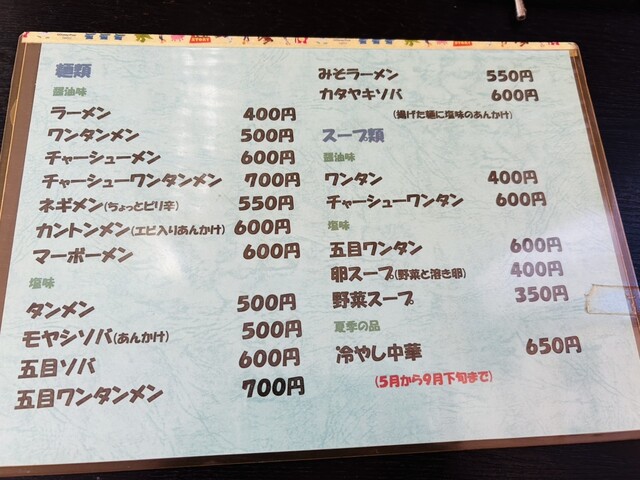 麺類
醤油味
ラーメン 400円
ワンタンメン 500円
チャーシューメン 600円
チャーシューワンタンメン 700円
ネギメン(ちょっとピリ辛) 550円
カントンメン(エビ入りあんかけ) 600円
マーボーメン 600円
塩味
タンメン 500円
モヤシソバ(あんかけ) 500円
五目ソバ 600円
五目ワンタンメン 700円
みそラーメン 550円
カタヤキソバ 600円
(揚げた麺に塩味のあんかけ)
スープ類
醤油味
ワンタン 400円
チャーシューワンタン 600円
塩味
五目ワンタン 600円
卵スープ(野菜と溶き卵) 400円
野菜スープ 350円
夏季の品
冷やし中華 650円
(5月から9月下旬まで)